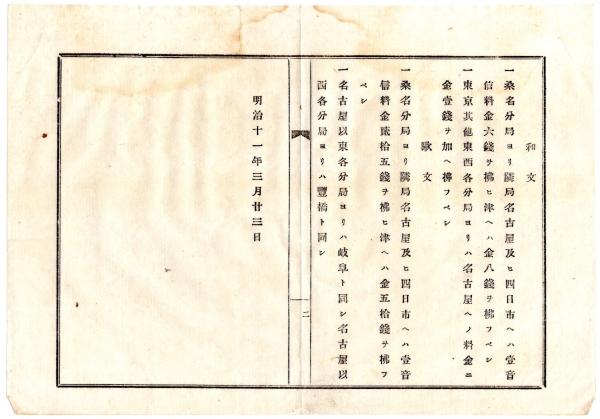 和文
一桑名分局ヨリ隣局名古屋及ヒ四日市ヘハ壹音
信料金六錢ヲ拂ヒ津ヘハ金八錢ヲ拂フベシ
一東京其他東西各分局ヨリハ名古屋ヘノ料金ニ
金壹錢ヲ加ヘ拂フベシ
歐文
一桑名分局ヨリ隣局名古屋及ヒ四日市ヘハ壹音
信料金貳拾五錢ヲ拂ヒ津ヘハ金五拾錢ヲ拂フ
ベシ
一名古屋以東各分局ヨリハ岐阜ト同シ名古屋以
西各分局ヨリハ豐橋ト同シ
二
明治十一年三月廿三日